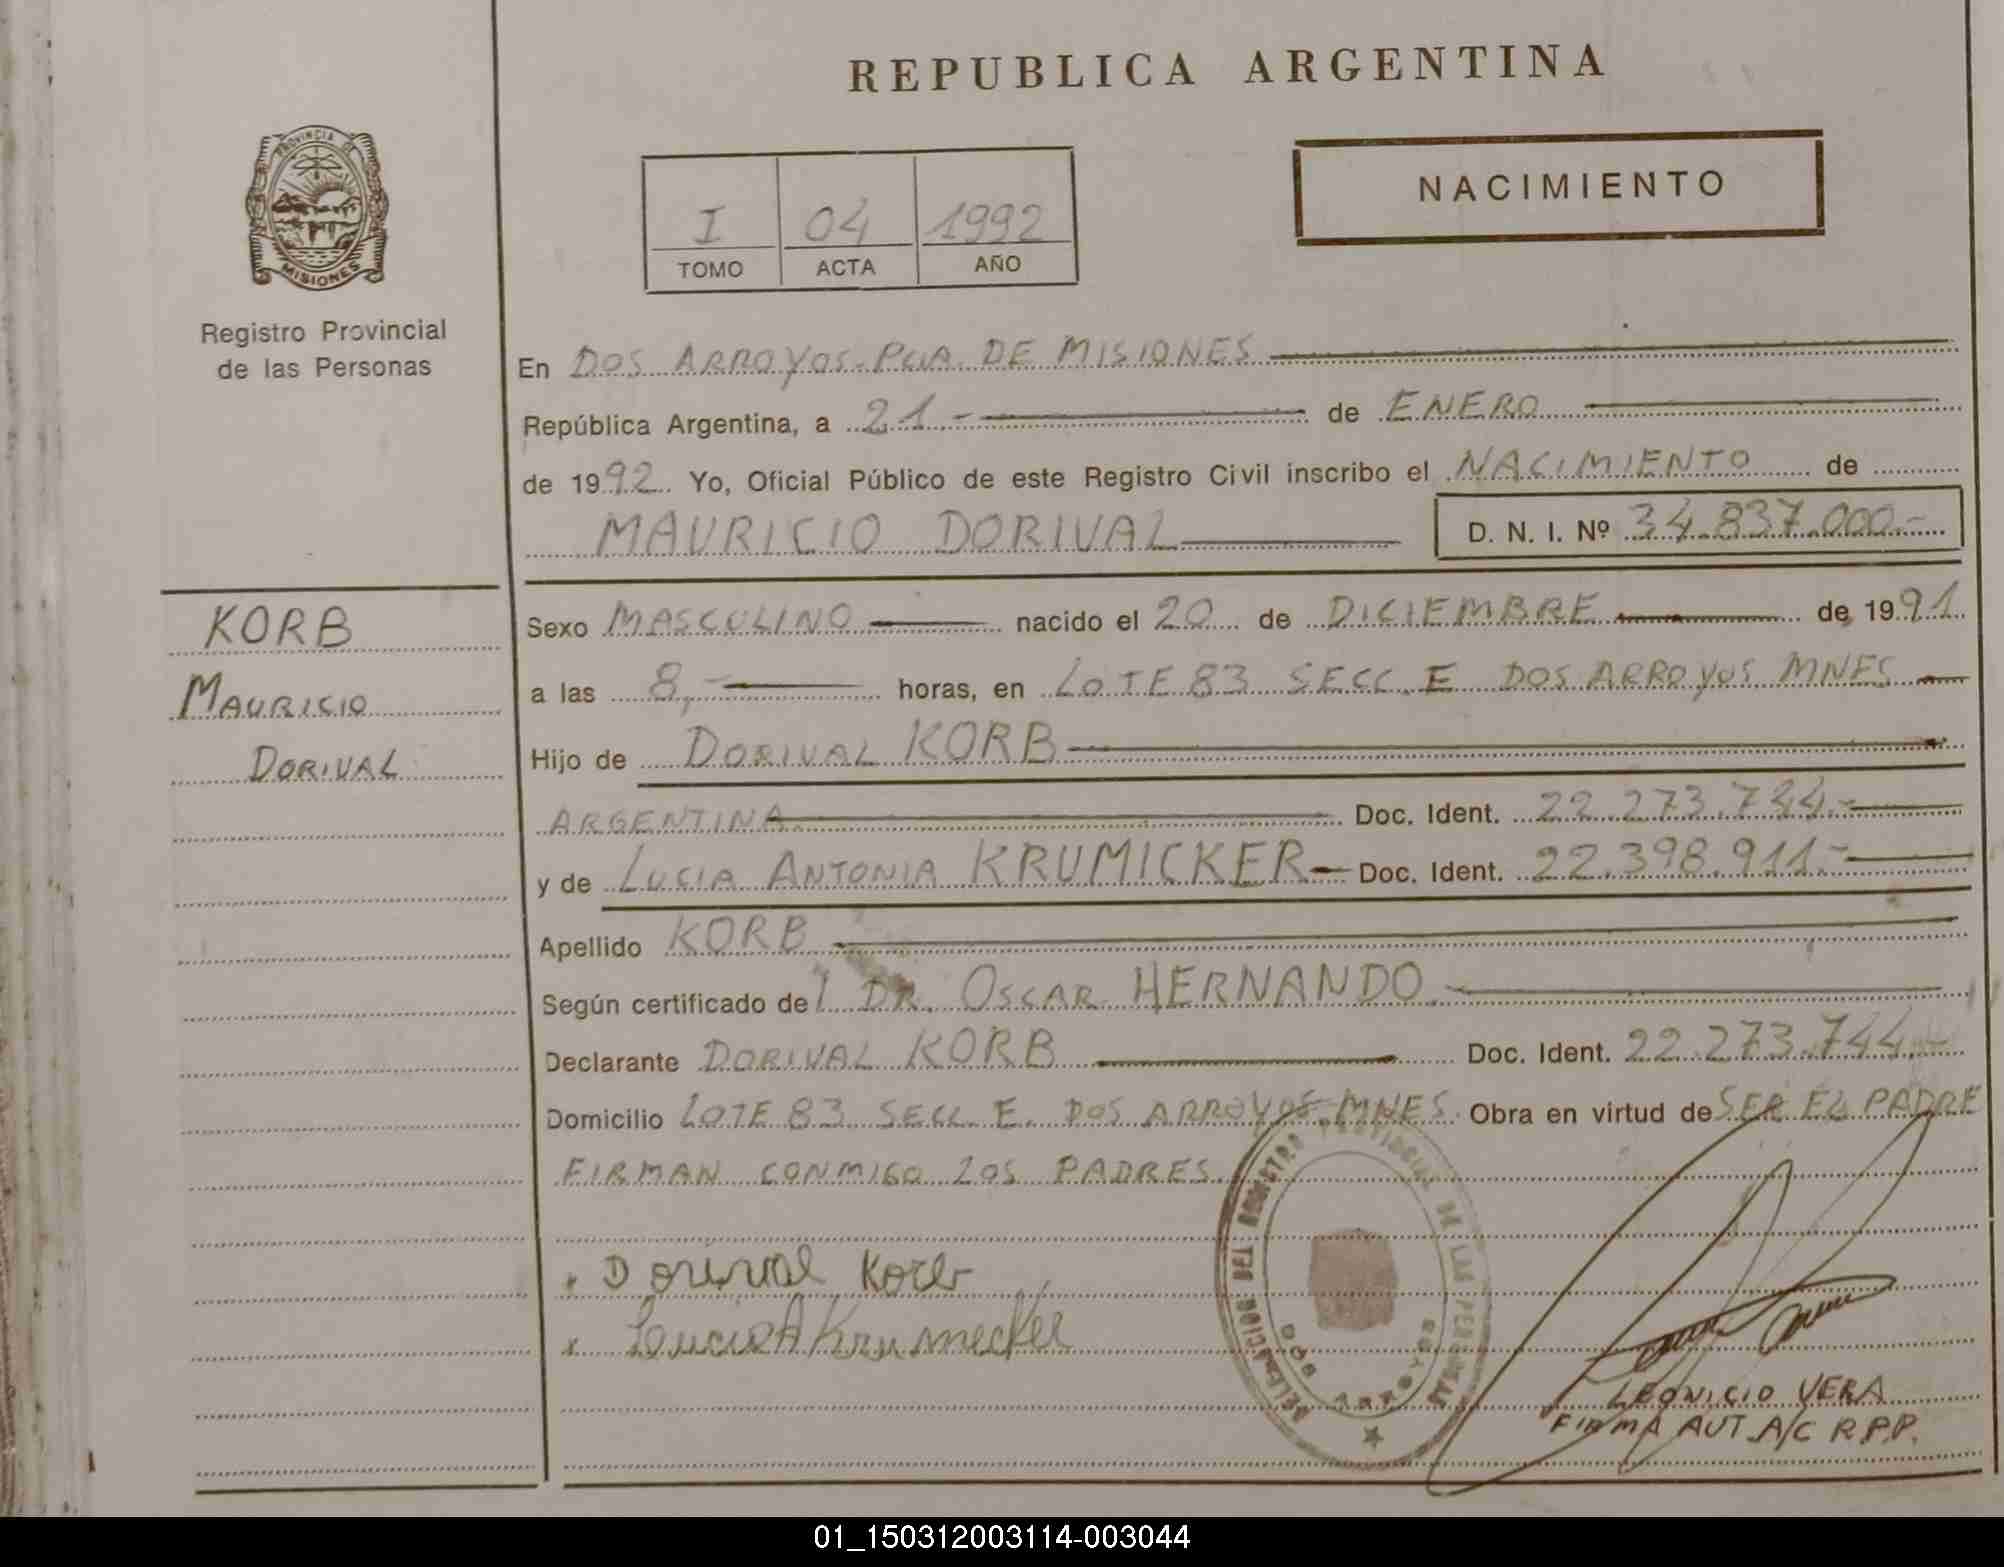 REPUBLICA ARGENTINA
PROVINCIA DE
MISIONES
Registro Provincial
de las Personas
I 04 1992
TOMO ACTA AÑO
NACIMIENTO
En DOS ARROYOS - PCIA. DE MISIONES
República Argentina, a 21.- de ENERO
de 1992. Yo, Oficial Público de este Registro Civil inscribo el NACIMIENTO de
MAURICIO DORIVAL D. N. I. Nº 34.837.000.-
KORB
MAURICIO
DORIVAL
Sexo MASCULINO nacido el 20 de DICIEMBRE de 1991.
a las 8,- horas, en LOTE 83 SECC. E DOS ARROYOS MNES
Hijo de DORIVAL KORB
ARGENTINA Doc. Ident. 22.273.744.-
y de LUCIA ANTONIA KRUMICKER Doc. Ident. 22.398.911.-
Apellido KORB
Según certificado del DR. OSCAR HERNANDO
Declarante DORIVAL KORB Doc. Ident. 22.273.744.-
Domicilio LOTE 83 SECC. E. DOS ARROYOS-MNES. Obra en virtud de SER EL PADRE
FIRMAN CONMIGO LOS PADRES.
Dorival Korb
Lucia A Krumecker
DELEGACION DEL REGISTRO PROVINCIAL DE LAS PERSONAS
DOS ARROYOS
LEONICIO VERA
FIRMA AUT. A/C R.P.P.
01_150312003114-003044